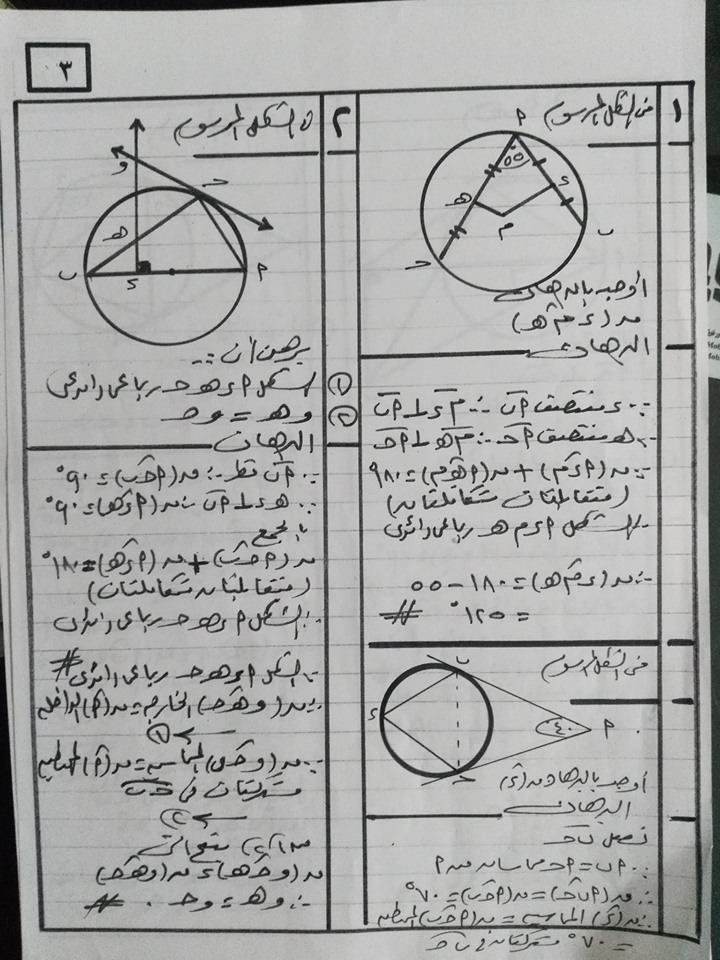 ٣
١
فى الشكل المرسوم
٥٥
م
أوجد بالبرهان
ق (ء م هـ)
البرهان
∵ ء منتصف أب ∴ م ء ⊥ أب
∵ هـ منتصف أحـ ∴ م هـ ⊥ أحـ
∵ ق (أ ء م) + ق (أ هـ م) = ١٨٠
(متقابلتان متكاملتان)
∴ الشكل أ ء م هـ رباعى دائرى
∴ ق (ء م هـ) = ١٨٠ - ٥٥
= ١٢٥° #
فى الشكل المرسوم
٤٠
أوجد بالبرهان ق (ء)
البرهان
نصل ب حـ
∵ أب = أحـ مماسان من أ
∴ ق (أ ب حـ) = ق (أ حـ ب) = ٧٠°
∴ ق (ء) المماسية = ق (أ حـ ب) المحيطية
= ٧٠° مشتركتان فى ب حـ
٢
فى الشكل المرسوم
برهن أن :-
① الشكل أ ء هـ حـ رباعى دائرى
② و هـ = و حـ
البرهان
∵ أب قطر ∴ ق (أ حـ ب) = ٩٠°
∵ هـ ء ⊥ أب ∴ ق (أ ء هـ) = ٩٠°
بالجمع
ق (أ حـ ب) + ق (أ ء هـ) = ١٨٠°
(متقابلتان متكاملتان)
∴ الشكل أ ء هـ حـ رباعى دائرى
#
∵ الشكل أ ء هـ حـ رباعى دائرى
∴ ق (و هـ حـ) الخارجة = ق (أ) الداخلة
← ①
∵ ق (و حـ ب) المماسية = ق (أ) المحيطية
مشتركتان فى حـ ب
← ②
من ١، ٢ ينتج أن
ق (و حـ هـ) = ق (و هـ حـ)
∴ و هـ = و حـ . #